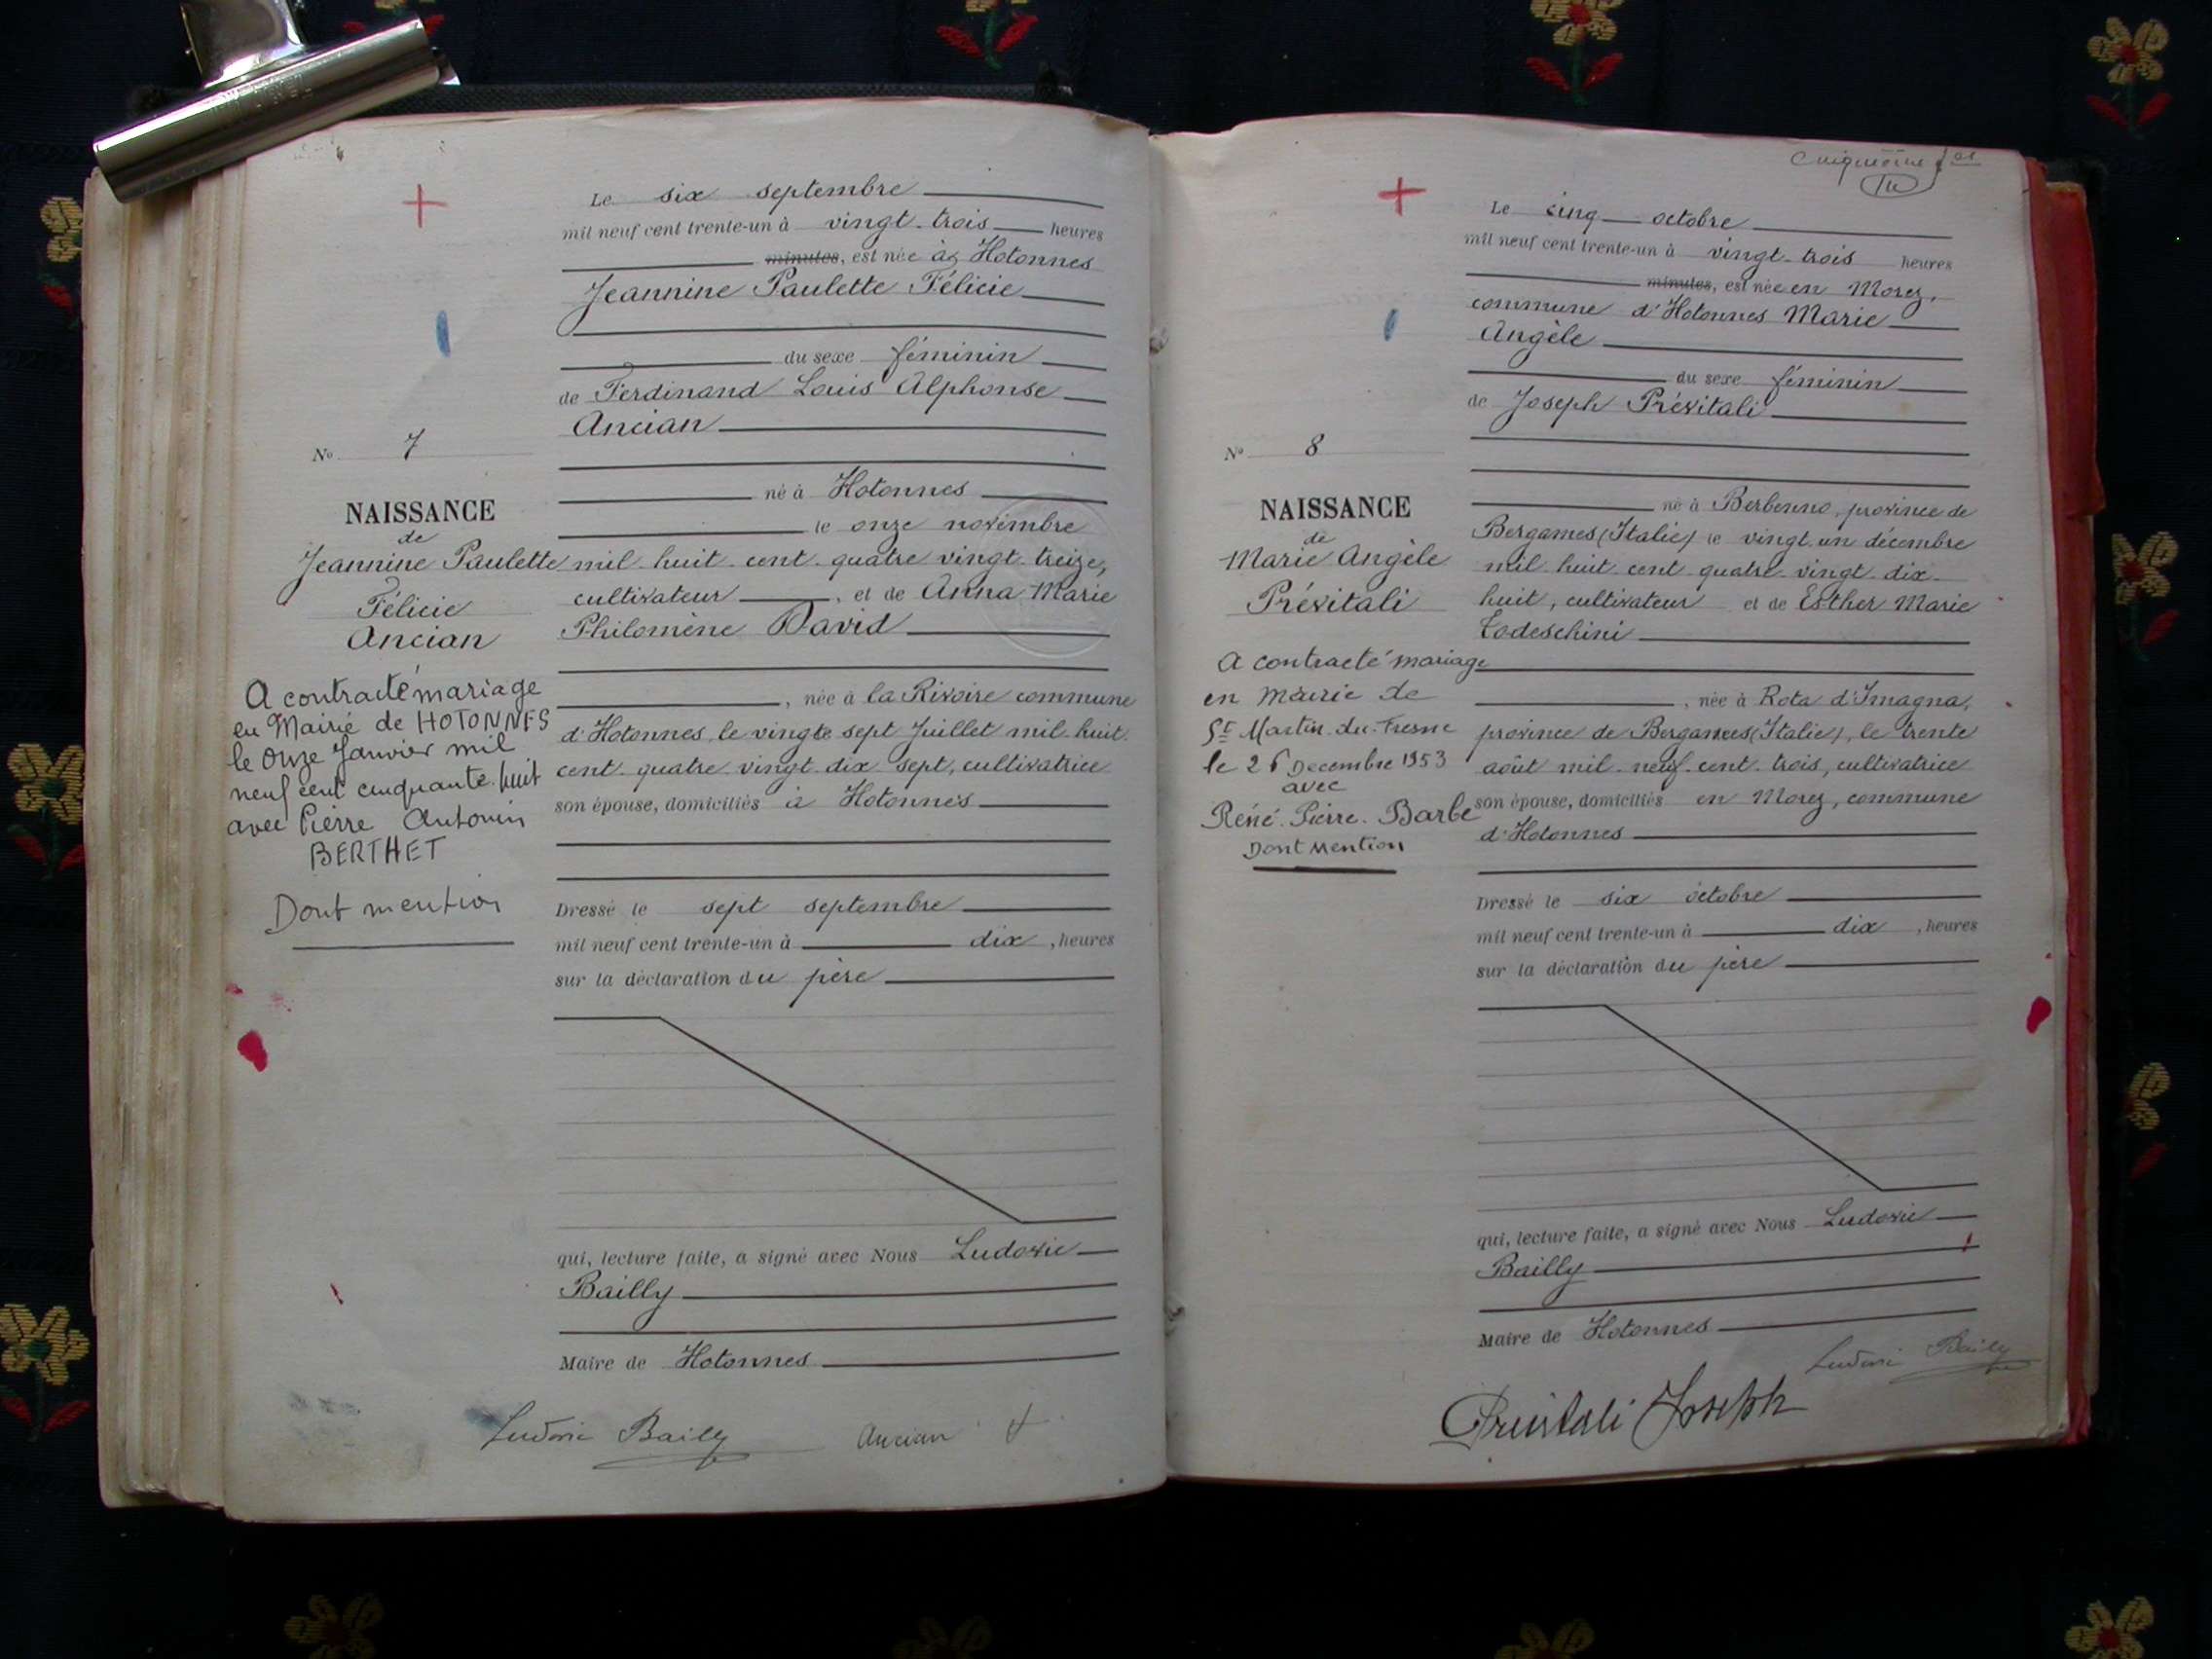 Le six septembre
mil neuf cent trente-un à vingt-trois heures
minutes, est née à Hotonnes
Jeannine Paulette Félicie
du sexe féminin
de Ferdinand Louis Alphonse
Ancian
né à Hotonnes
le onze novembre
mil huit cent quatre vingt treize,
cultivateur, et de Anna Marie
Philomène David
, née à la Rivoire commune
d'Hotonnes le vingt sept Juillet mil huit
cent quatre vingt dix sept, cultivatrice
son épouse, domiciliés à Hotonnes
Dressé le sept septembre
mil neuf cent trente-un à dix, heures
sur la déclaration du père
qui, lecture faite, a signé avec Nous Ludovic
Bailly
Maire de Hotonnes
Ludovic Bailly Ancian
No 7
NAISSANCE
de
Jeannine Paulette
Félicie
Ancian
A contracté mariage
en Mairie de HOTONNES
le Onze Janvier mil
neuf cent cinquante-huit
avec Pierre Antonin
BERTHET
Dont mention
Le cinq octobre
mil neuf cent trente-un à vingt-trois heures
minutes, est née en Morez,
commune d'Hotonnes Marie
Angèle
du sexe féminin
de Joseph Prévitali
né à Berbenno, province de
Bergames (Italie) le vingt un décembre
mil huit cent quatre vingt dix-
huit, cultivateur et de Esther Marie
Todeschini
, née à Rota d'Imagna,
province de Bergames (Italie), le trente
août mil neuf cent trois, cultivatrice
son épouse, domiciliés en Morez, commune
d'Hotonnes
Dressé le six octobre
mil neuf cent trente-un à dix, heures
sur la déclaration du père
qui, lecture faite, a signé avec Nous Ludovic
Bailly
Maire de Hotonnes
Ludovic Bailly
Prévitali Joseph
No 8
NAISSANCE
de
Marie Angèle
Prévitali
A contracté mariage
en mairie de
St Martin-du-Fresne
le 26 Décembre 1953
avec
René Pierre Barbe
Dont Mention